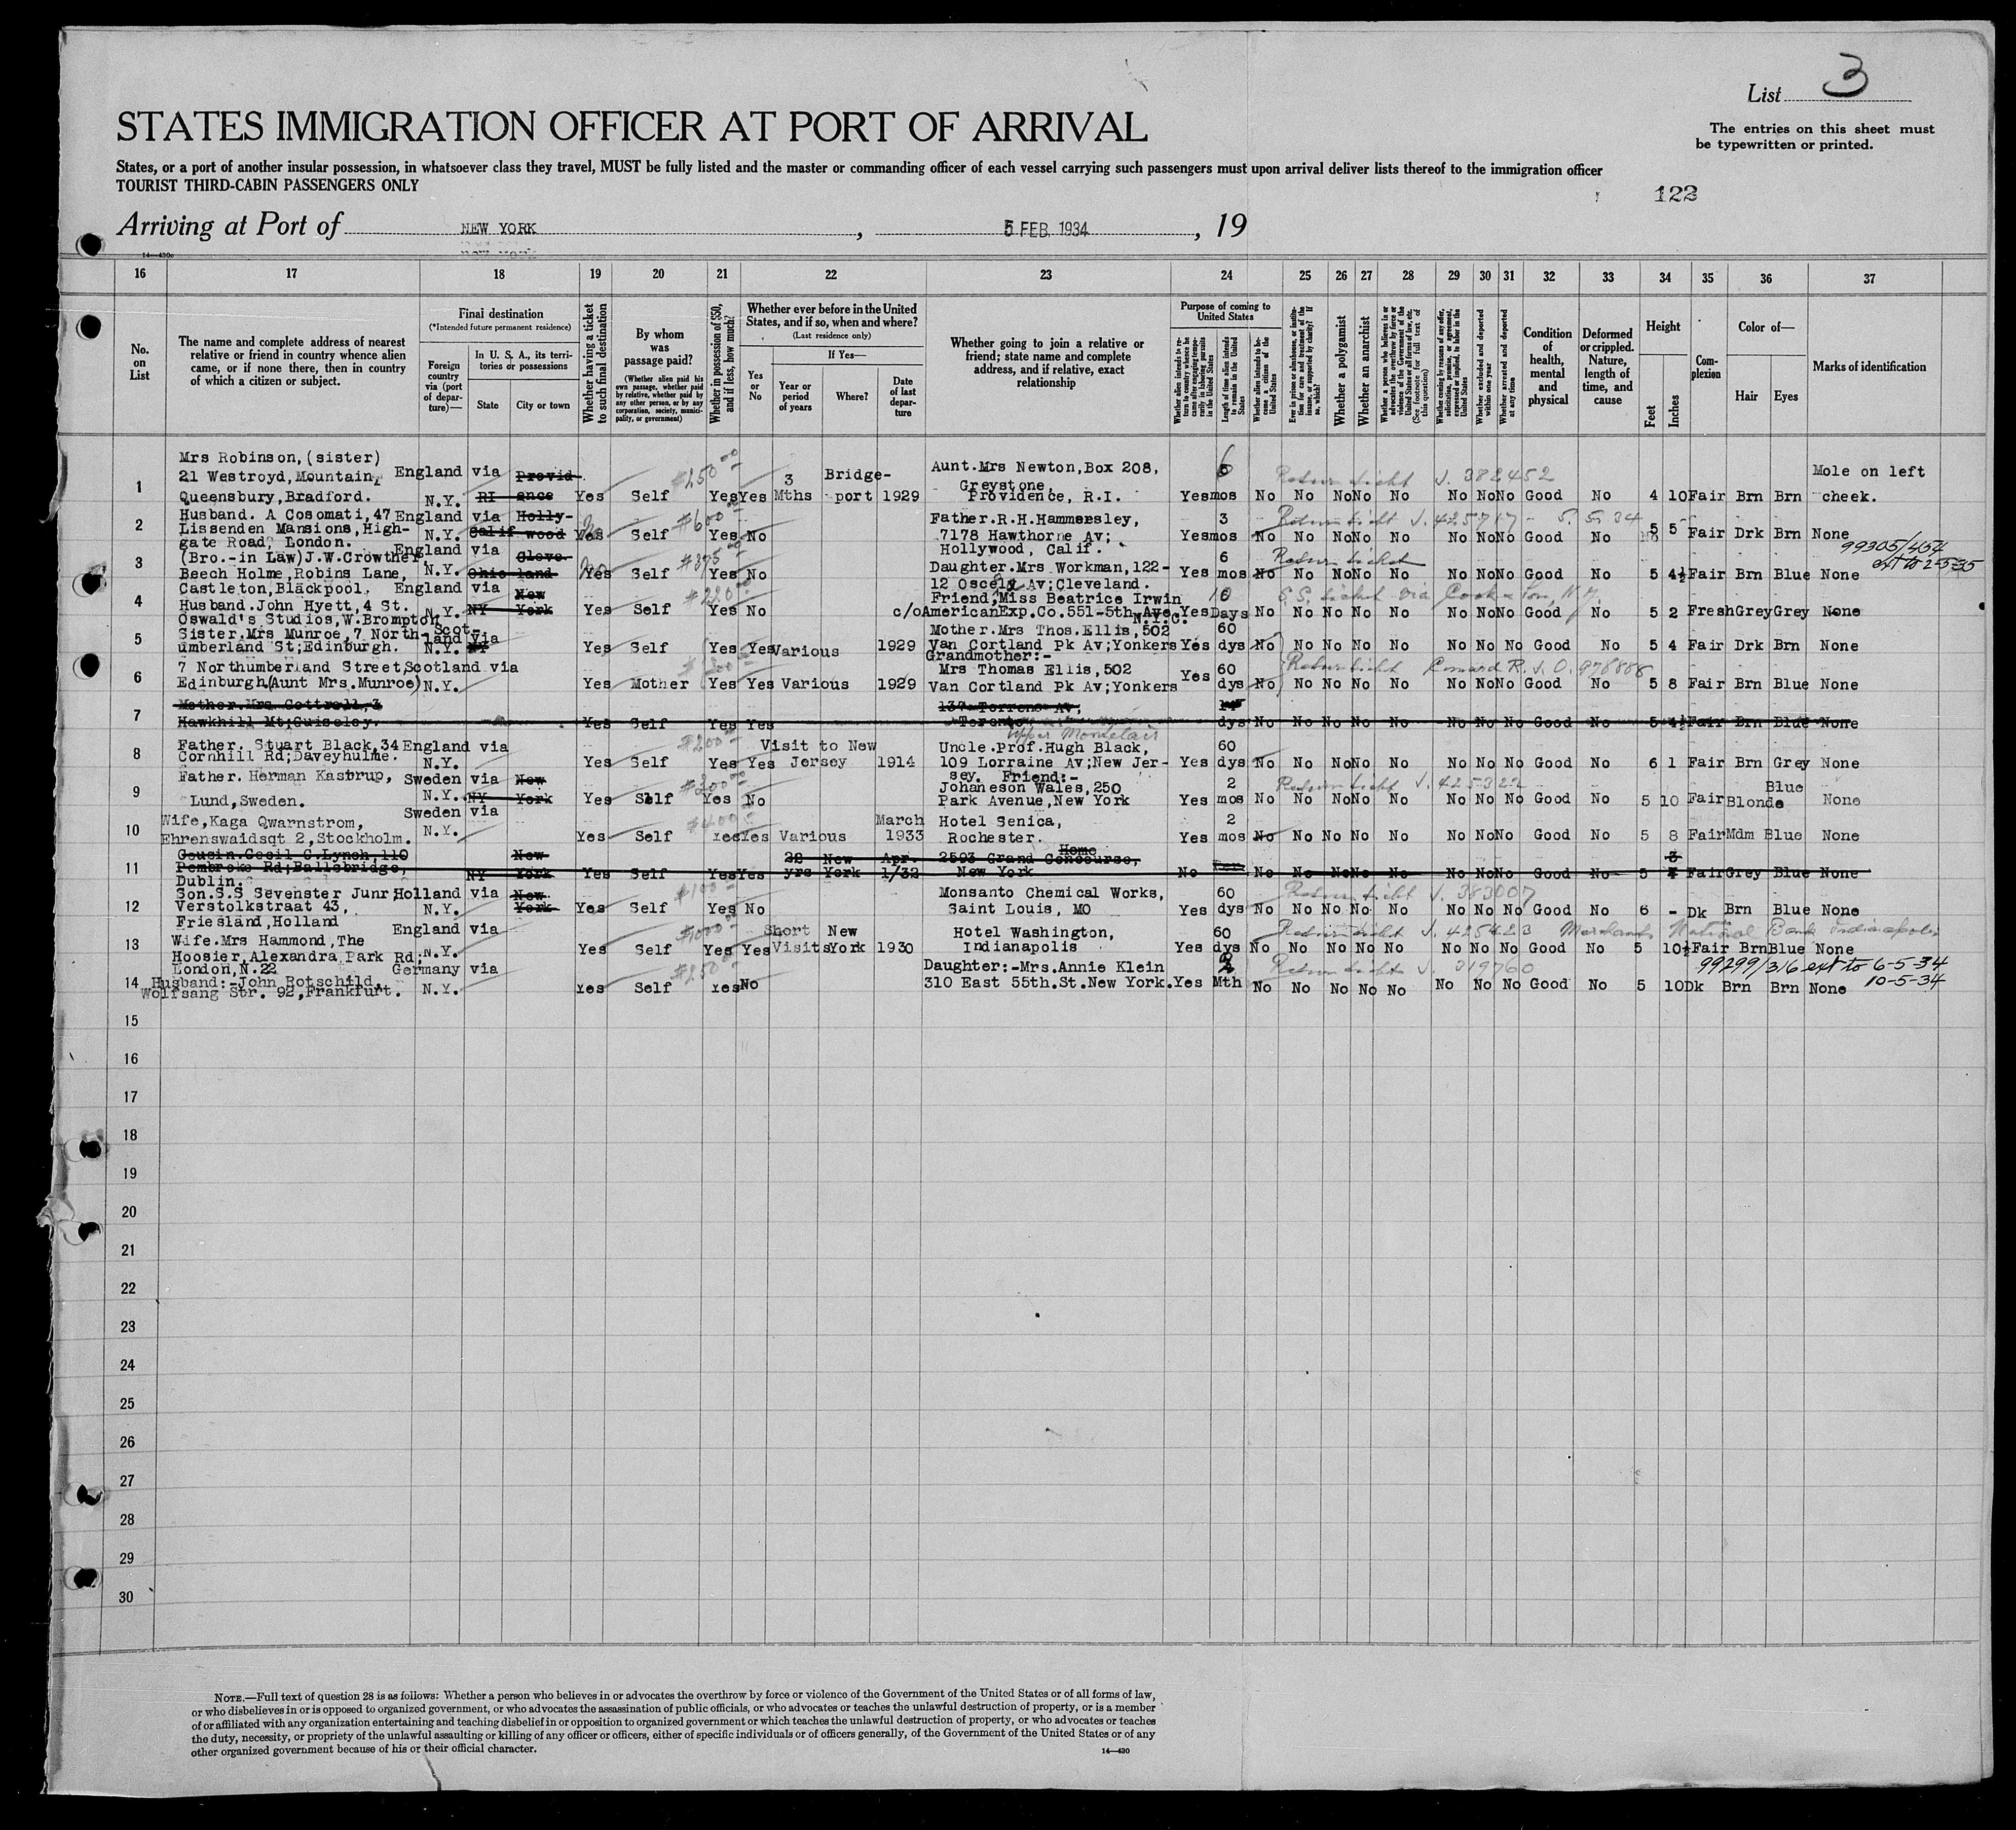 List 3
The entries on this sheet must
be typewritten or printed.
STATES IMMIGRATION OFFICER AT PORT OF ARRIVAL
States, or a port of another insular possession, in whatsoever class they travel, MUST be fully listed and the master or commanding officer of each vessel carrying such passengers must upon arrival deliver lists thereof to the immigration officer
TOURIST THIRD-CABIN PASSENGERS ONLY
122
Arriving at Port of NEW YORK, 5 FEB. 1934, 19
14—430c
16 17 18 19 20 21 22 23 24 25 26 27 28 29 30 31 32 33 34 35 36 37
No. on List
The name and complete address of nearest relative or friend in country whence alien came, or if none there, then in country of which a citizen or subject.
Final destination
(*Intended future permanent residence)
Foreign country via (port of departure)—
In U. S. A., its territories or possessions
State
City or town
Whether having a ticket to such final destination
By whom was passage paid?
(Whether alien paid his own passage, whether paid by relative, whether paid by any other person, or by any corporation, society, municipality, or government)
Whether in possession of $50, and if less, how much?
Whether ever before in the United States, and if so, when and where?
(Last residence only)
Yes or No
If Yes—
Year or period of years
Where?
Date of last departure
Whether going to join a relative or friend; state name and complete address, and if relative, exact relationship
Purpose of coming to United States
Whether alien intends to return to country whence he came after engaging temporarily in laboring pursuits in the United States
Length of time alien intends to remain in the United States
Whether alien intends to become a citizen of the United States
Ever in prison or almshouse, or institution for care and treatment of the insane, or supported by charity? If so, which?
Whether a polygamist
Whether an anarchist
Whether a person who believes in or advocates the overthrow by force or violence of the Government of the United States or all forms of law, etc. (See footnote for full text of this question)
Whether coming by reason of any offer, solicitation, promise, or agreement, expressed or implied, to labor in the United States
Whether excluded and deported within one year
Whether arrested and deported at any time
Condition of health, mental and physical
Deformed or crippled. Nature, length of time, and cause
Height
Feet
Inches
Complexion
Color of—
Hair
Eyes
Marks of identification
1 Mrs Robinson,(sister) 21 Westroyd,Mountain, Queensbury,Bradford. England via N.Y. RI Providence Yes Self $250 00 Yes Yes 3 Mths Bridgeport 1929 Aunt.Mrs Newton,Box 208, Greystone, Providence, R.I. Yes 6 mos No No No No No No No No Good No 4 10 Fair Brn Brn Mole on left cheek.
Return ticket J. 382452
2 Husband. A Cosomati,47 Lissenden Mansions,Highgate Road, London. England via N.Y. Calif Hollywood Yes Self $600 00 Yes No Father.R.H.Hammersley, 7178 Hawthorne Av; Hollywood, Calif. Yes 3 mos No No No No No No No No Good No 5 5 Fair Drk Brn None
Return ticket J. 425717 - 5. 5. 34
3 (Bro.-in Law)J.W.Crowther Beech Holme,Robins Lane, Castleton,Blackpool. England via N.Y. Ohio Cleveland Yes Self $375 00 Yes No Daughter.Mrs Workman,122- 12 Oscela Av;Cleveland. Yes 6 mos No No No No No No No No Good No 5 4½ Fair Brn Blue None
Return ticket
99305/454
ext to 2-5-35
4 Husband.John Hyett,4 St. Oswald's Studios,W.Brompton England via N.Y. NY New York Yes Self $220 Yes No Friend,Miss Beatrice Irwin c/oAmericanExp.Co.551-5th Ave N.Y.C. Yes 10 Days No No No No No No No No Good No 5 2 Fresh Grey Grey None
S.S. ticket via Cook & Son, N.Y.
5 Sister.Mrs Munroe,7 Northumberland St;Edinburgh. Scotland via N.Y. NY Yes Self Yes Yes Various 1929 Mother.Mrs Thos.Ellis,502 Van Cortland Pk Av;Yonkers Yes 60 dys No No No No No No No No Good No 5 4 Fair Drk Brn None
6 7 Northumberland Street, Edinburgh(Aunt Mrs.Munroe) Scotland via N.Y. Yes Mother Yes Yes Various 1929 Grandmother:- Mrs Thomas Ellis,502 Van Cortland Pk Av;Yonkers Yes 60 dys No No No No No No No No Good No 5 8 Fair Brn Blue None
Return ticket Cunard R.J.O. 978888
7 Mother.Mrs Cottrell,3 Hawkhill Mt;Guiseley. Yes Self Yes Yes 137 Torrens Av; Toronto dys No No No No No No No No Good No 5 4½ Fair Brn Blue None
8 Father. Stuart Black,34 Cornhill Rd;Daveyhulme. England via N.Y. Yes Self $200 Yes Yes Visit to New Jersey 1914 Uncle.Prof.Hugh Black, 109 Lorraine Av;New Jersey. Upper Montclair Yes 60 dys No No No No No No No No Good No 6 1 Fair Brn Grey None
9 Father. Herman Kastrup, Lund,Sweden. Sweden via N.Y. NY New York Yes Self $300 00 Yes No Friend:- Johaneson Wales,250 Park Avenue,New York Yes 2 mos No No No No No No No No Good No 5 10 Fair Blonde Blue None
Return ticket J. 425322
10 Wife,Kaga Qwarnstrom, Ehrenswaidsqt 2,Stockholm. Sweden via N.Y. Yes Self $400 Yes Yes Various March 1933 Hotel Senica, Rochester. Yes 2 mos No No No No No No No No Good No 5 8 Fair Mdm Blue None
11 Cousin.Cecil C.Lynch,110 Pembroke Rd;Ballsbridge, Dublin. NY New York Yes Self Yes Yes 28 yrs New York Apr. 1/32 Home 2593 Grand Concourse, New York No No No No No No No No No Good No 5 Fair Grey Blue None
12 Son.S.S Sevenster Junr, Verstolkstraat 43, Friesland,Holland Holland via N.Y. New York Yes Self $100 Yes No Monsanto Chemical Works, Saint Louis, MO Yes 60 dys No No No No No No No No Good No 6 - Dk Brn Blue None
Return ticket J. 383007
13 Wife.Mrs Hammond,The Hoosier,Alexandra Park Rd; London,N.22 England via N.Y. Yes Self $1000 Yes Yes Short Visits New York 1930 Hotel Washington, Indianapolis Yes 60 dys No No No No No No No No Good No 5 10½ Fair Brn Blue None
Return ticket J. 425423 Merchants National Bank Indianapolis
14 Husband:-John Rotschild, Wolfsang Str. 92,Frankfurt. Germany via N.Y. Yes Self $250 Yes No Daughter:-Mrs.Annie Klein 310 East 55th.St.New York. Yes Mth No No No No No No No No Good No 5 10 Dk Brn Brn None
Return ticket J. 319760
99299/316 ext to 6-5-34
10-5-34
15
16
17
18
19
20
21
22
23
24
25
26
27
28
29
30
NOTE.—Full text of question 28 is as follows: Whether a person who believes in or advocates the overthrow by force or violence of the Government of the United States or of all forms of law,
or who disbelieves in or is opposed to organized government, or who advocates the assassination of public officials, or who advocates or teaches the unlawful destruction of property, or is a member
of or affiliated with any organization entertaining and teaching disbelief in or opposition to organized government or which teaches the unlawful destruction of property, or who advocates or teaches
the duty, necessity, or propriety of the unlawful assaulting or killing of any officer or officers, either of specific individuals or of officers generally, of the Government of the United States or of any
other organized government because of his or their official character.
14—430